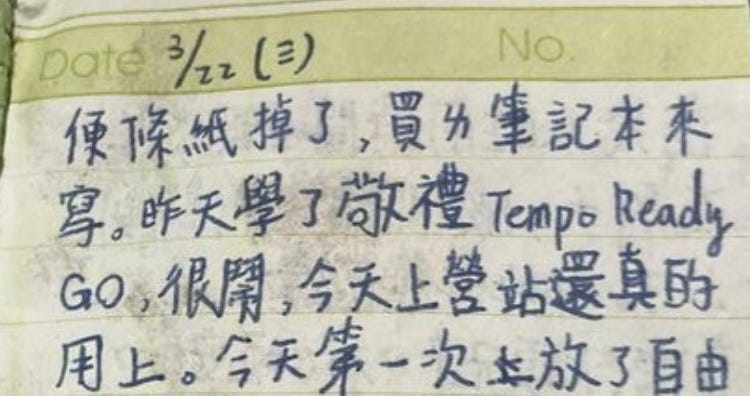 Date 3/22 (三) No.
便條紙掉了,買ㄌ筆記本來
寫。昨天學了敬禮 Tempo Ready
GO,很鬧,今天上營站還真的
用上。今天第一次放了自由